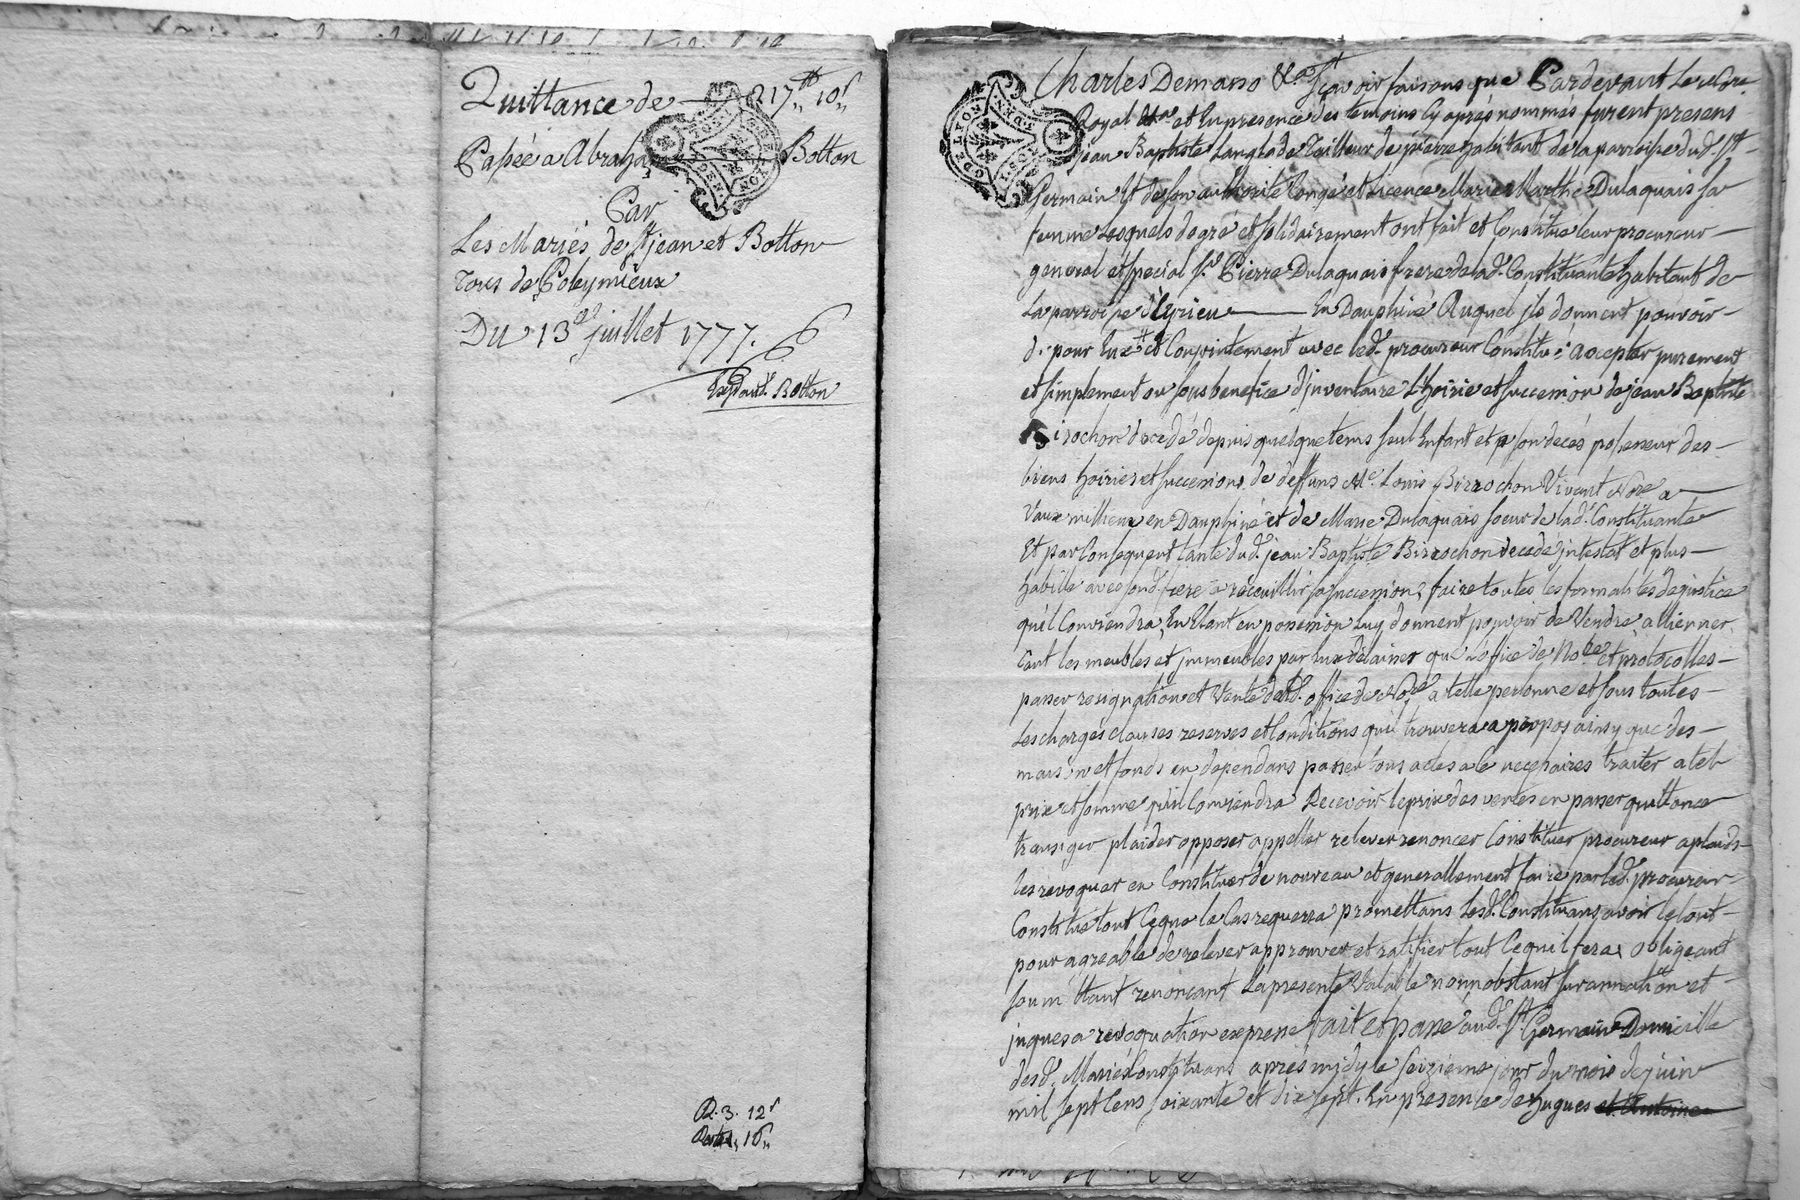 Quittance de 217tt 10s
Passée a Abraham Botton
Par
Les Mariés de St jean et Botton
tous de Poleymieux
Du 13e juillet 1777.
Exped. Botton
R. 3. 12s
16
Charles Demano &a Sçavoir faisons que Pardevant le Nore
Royal et En presence des temoins cy aprés nommés furent presens
jean Baptiste Langlade Tailleur de pierre habitant de la parroisse dud. St
Germain Et de son authorité Congé et licence Marie Marthe Dulaquais sa
femme Lesquels de gré et solidairement ont fait et Constitué leur procureur
general et special Sr. Pierre Dulaquais frere de lad. Constituante habitant de
La parroisse d'Eyrieu En Dauphiné Auquel ils donnent pouvoir
de pour Eux et Conjointement avec led. procureur Constitué accepter purement
et simplement ou sous benefice d'jnventaire L'hoirie et succession de jean Baptiste
Birochon decedé depuis quelque tems seul Enfant et a son decés possesseur des
biens hoiries et successions de deffuns Me. Louis Birrochon Vivant Nore a
Vaux millieux en Dauphiné et de Marie Dulaquais soeur de lad. Constituante
Et par Consequent tante dud. jean Baptiste Birrochon decedé jntestat et plus
habille avec sond. frere a receuillir sa succession, faire toutes les formalités de justice
qu'il Conviendra, En Etant en possession Luy donnent pouvoir de Vendre allienner
tant les meubles et jmmeubles par Eux delaissés que L'office de Nore et protocolles
passer resignation et Vente dud. office de Nore a telle personne et sous toutes
Les charges clauses reserves et Conditions qu'il trouvera a propos ainsy que des
maison et fonds en dependans passer tous actes a ce necessaires traiter a tel
prix et somme qu'il Conviendra Recevoir le prix des ventes en passer quittance
transiger plaider opposer appeller relever renoncer Constituer procureur a plaids
les revoquer en Constituer de nouveau et generallement faire par led. procureur
Constitué tout Ce que le Cas requerra promettans Lesd. Constituans avoir le tout
pour agreable de relever approuver et ratifier tout Ce qu'il fera, obligeant
soumettant renonçant La presente Valable nonnobstant surannation et
jusques a revoquation expresse fait et passé aud. St. Germain Domicille
desd. Mariés Constituans aprés midy le seizieme jour du mois de juin
mil sept Cens soixante et dix sept. En presence de hugues et Antoine